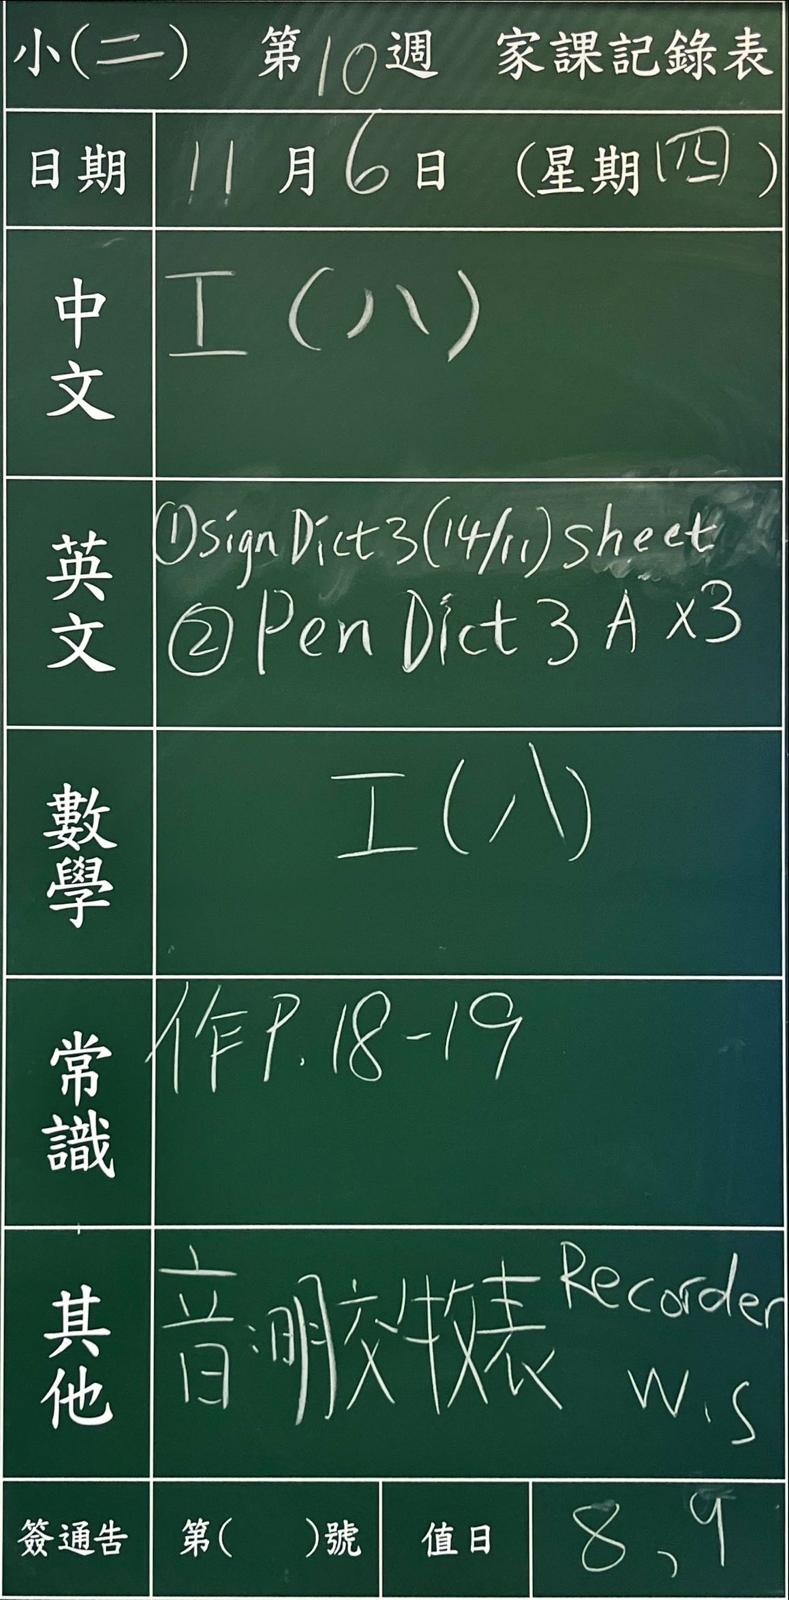 小(二) 第10週 家課記錄表
日期 11月6日 (星期四)
中文 工(八)
英文 ①sign Dict 3 (14/11) sheet
②Pen Dict 3 A x3
數學 工(八)
常識 作P.18-19
其他 音:明交牧表 Recorder
W.S
簽通告 第( )號 值日 8、9